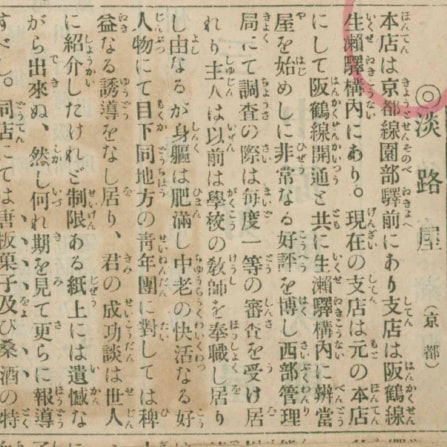 ◎淡路屋（京都）
本店は京都線園部驛前にあり支店は阪鶴線
生瀨驛構內にあり。現在の支店は元の本店
にして阪鶴線開通と共に生瀨驛構內に辨當
屋を始めしに非常なる好評を博し西部管理
局にて調査の際は每度一等の審査を受け居
れり主人は以前は學校の敎師を奉職し居り
し由なるが身軀は肥滿し中老の快活なる好
人物にて目下同地方の靑年團に對しては稗
益なる誘導をなし居り、君の成功談は世人
に紹介したけれど制限ある紙上には遺憾な
がら出來ぬ、然し何れ期を見て更らに報導
すべし。同店にては唐板菓子及び桑酒の特